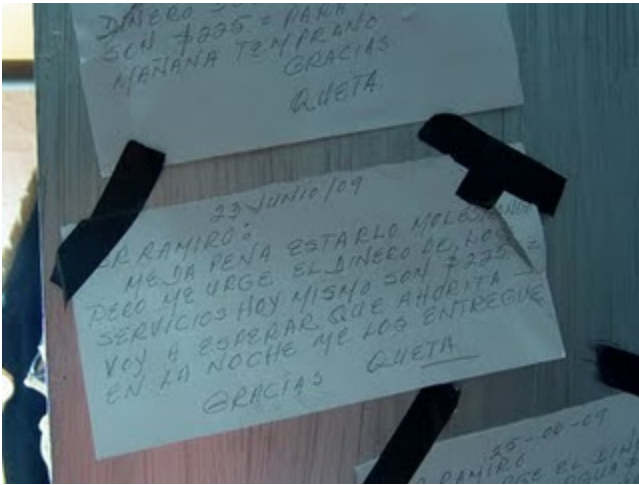 DINERO
SON $225= PARA
MAÑANA TEMPRANO
GRACIAS
QUETA.
23 JUNIO/09
SR. RAMIRO:
ME DA PENA ESTARLO MOLESTANDO
PERO ME URGE EL DINERO DE LOS
SERVICIOS HOY MISMO SON $225=
VOY A ESPERAR QUE AHORITA
EN LA NOCHE ME LOS ENTREGUE
GRACIAS QUETA
RAMIRO
URGE EL